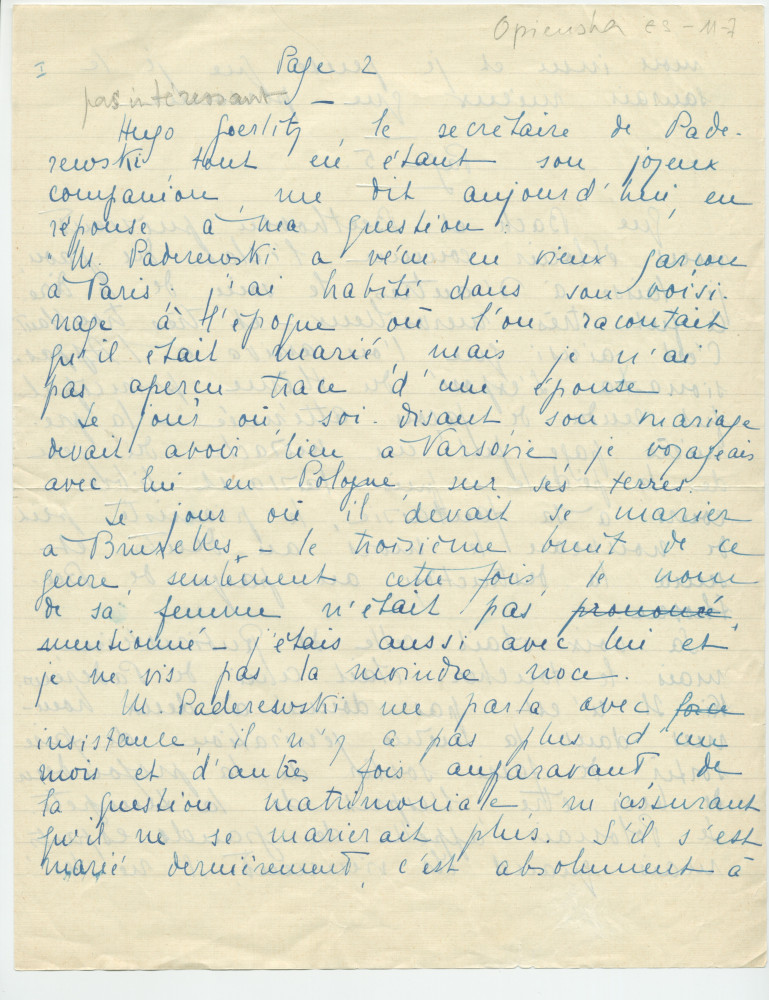 Opienska E3-11-7
I
Page 2
pas intéressant —
Hugo Goerlitz, le secrétaire de Pade-
rewski tout en étant son joyeux
companion, me dit aujourd'hui, en
réponse à ma question :
"M. Paderewski a vécu en vieux garçon
à Paris. j'ai habité dans son voisi-
nage à l'époque où l'on racontait
qu'il était marié, mais je n'ai
pas aperçu trace d'une épouse
Le jour où soi-disant son mariage
devait avoir lieu à Varsovie je voyageais
avec lui en Pologne, sur ses terres.
Le jour où il devait se marier
à Bruxelles, - le troisième bruit de ce
genre, seulement cette fois, le nom
de sa femme n'était pas prononcé
mentionné - j'étais aussi avec lui et
je ne vis pas la moindre noce.
M. Paderewski me parla avec
insistance il n'y a pas plus d'un
mois et d'autres fois auparavant de
la question matrimoniale m'assurant
qu'il ne se marierait plus. S'il s'est
marié dernièrement, c'est absolument à